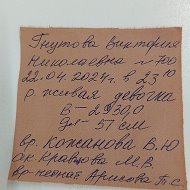 Гнутова Виктория
Николаевна № 700
22.04.2024г. в 23 10
р. живая девочка
В - 2930,0
Дл - 51 см
вр. Кожанова В.Ю
ак Кравцова М.В.
вр неонат Арисова Л.С.